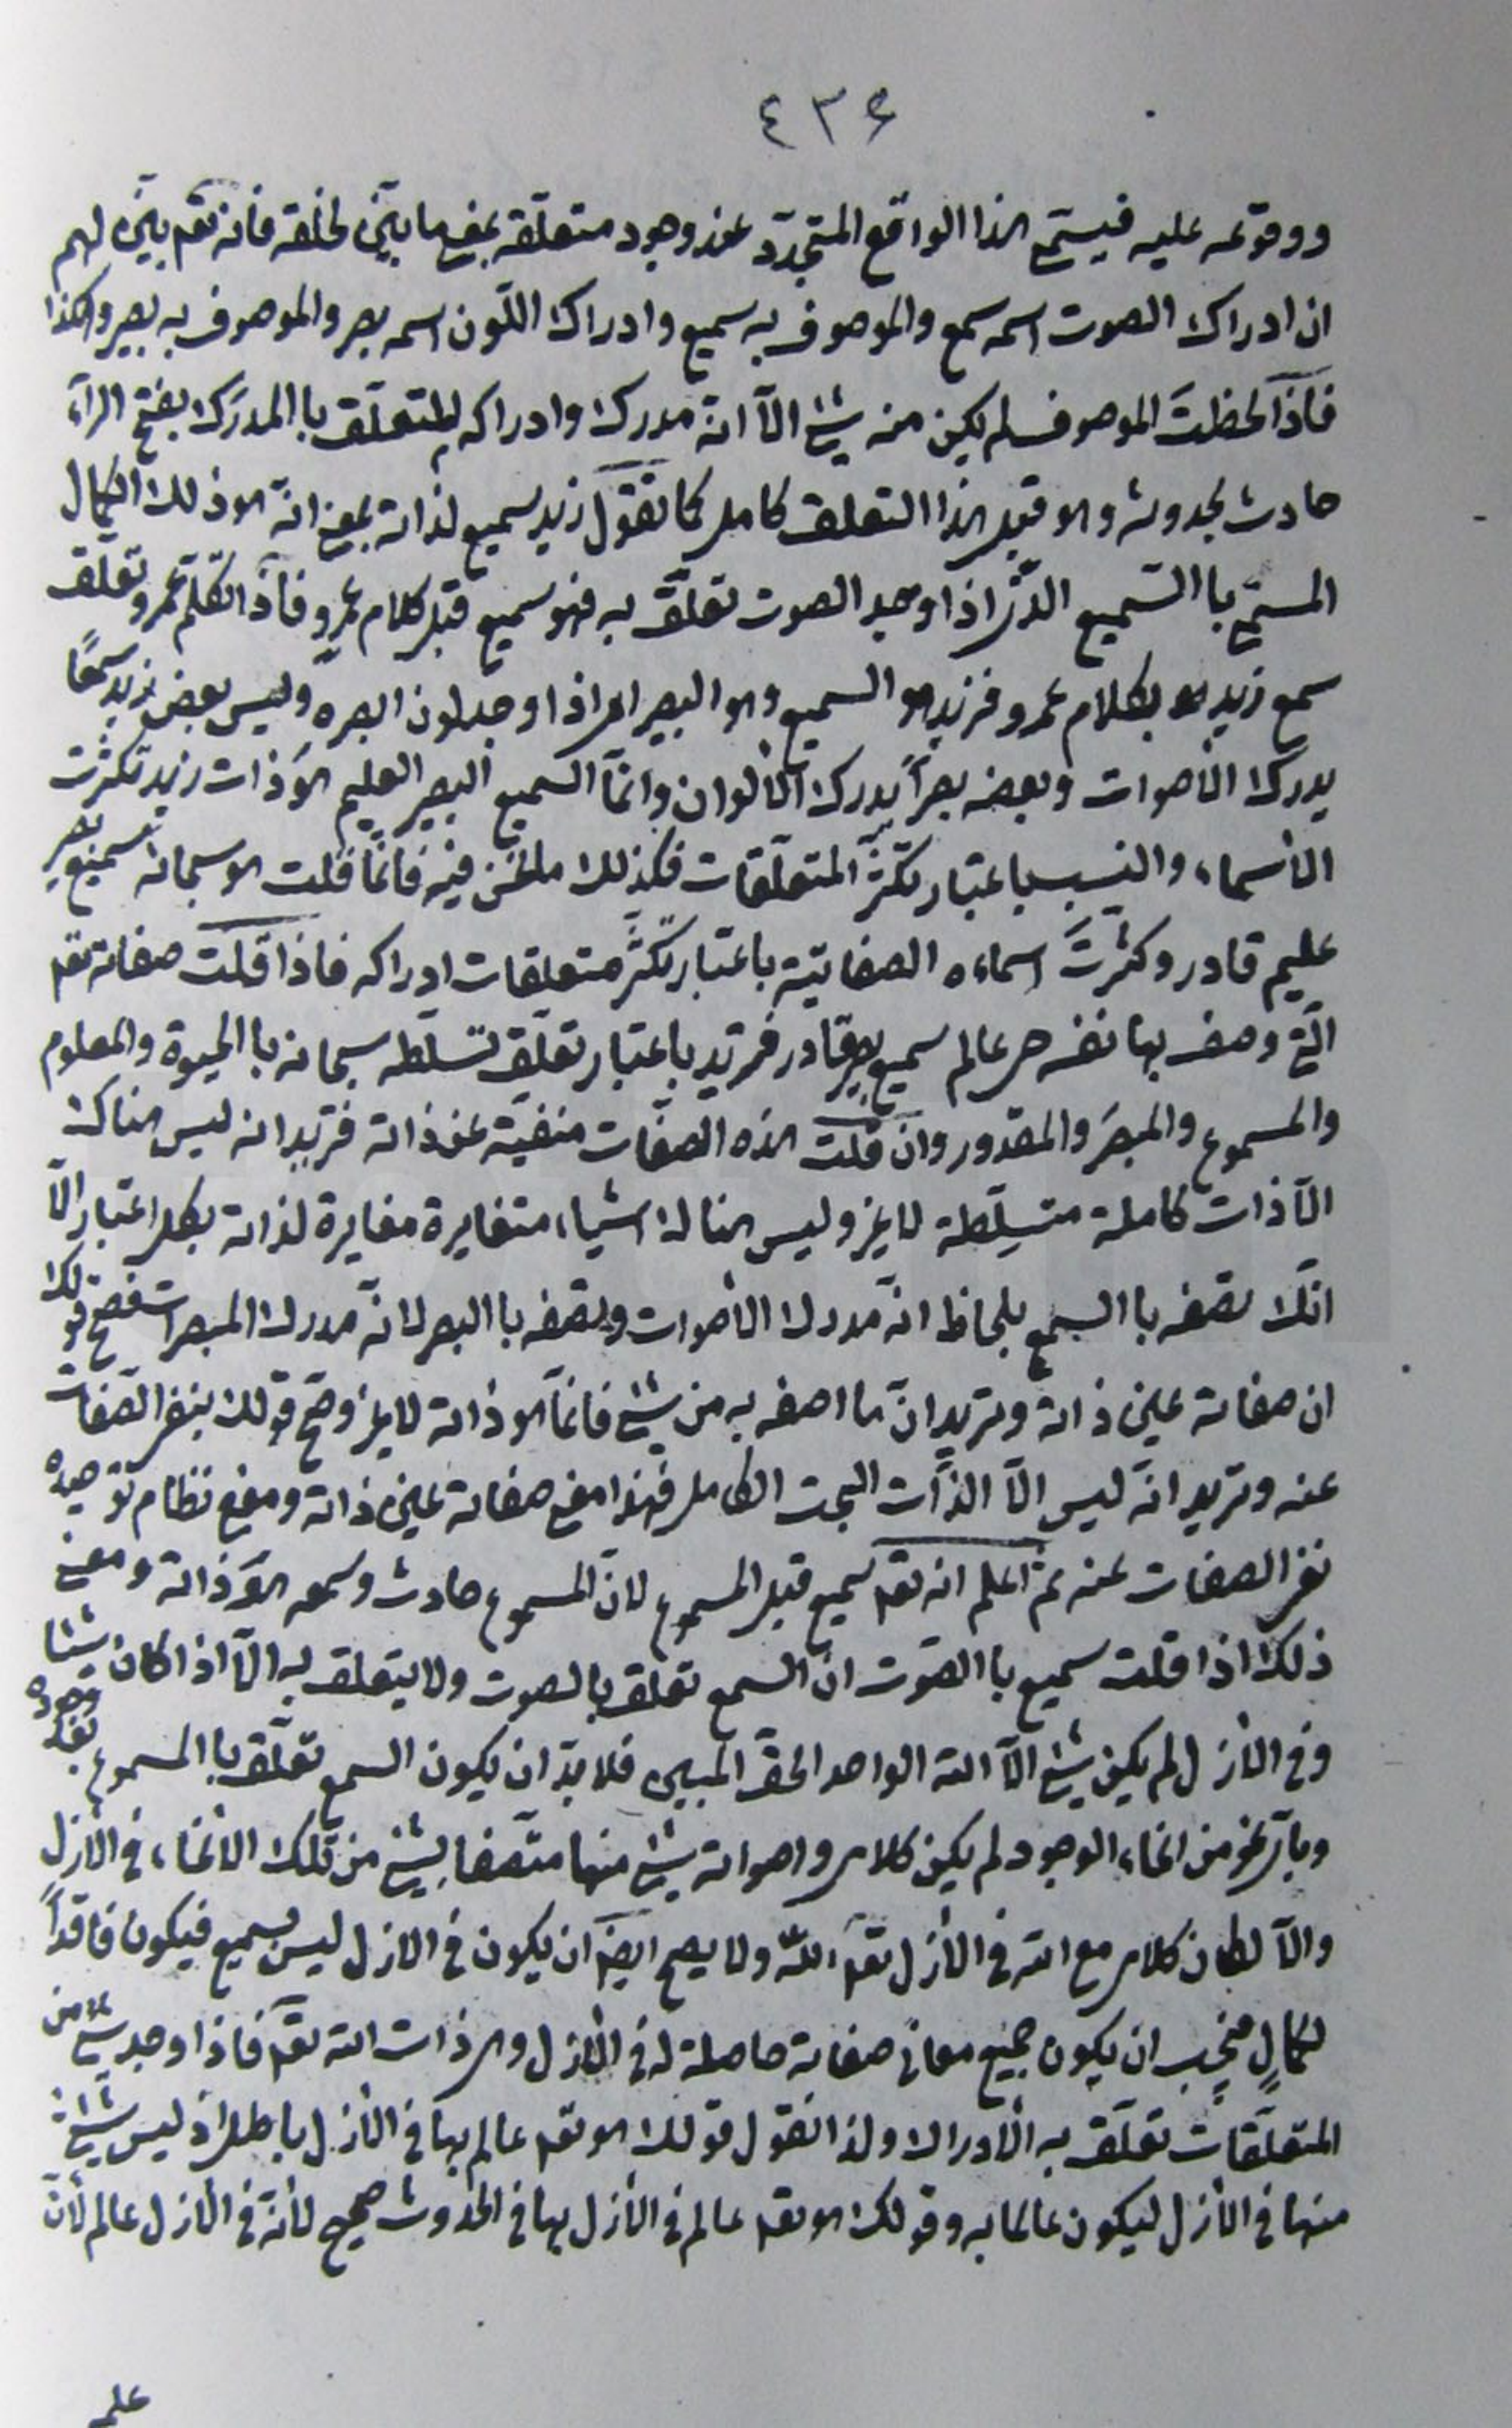 ٤٣۶
ووقوعه عليه فيسمّى هذا الواقع المتجدّد عند وجود متعلّقه بمعنى ما بيّنه لخلقه فانه تعم بيّن لهم
ان ادراك الصوت اسمه سمع والموصوف به سميع وادراك اللّون اسمه بصر والموصوف به بصير وهكذا
فاذا لحظت الموصوف لم يكن منه شئ الّا انه مدرك وادراكه المتعلّق باالمدرَك بفتح الرآء
حادث بحدوثه وهو قبل هذا التعلق كامل كما تقول زيد سميع لذاته بمعنى انّه هو ذلك الكمال
المسمّى باالسّميع الّذى اذا وجد الصوت تعلّق به فهو سميع قبل كلام عمرو فاذا تكلم عمرو تعلّق
سمع زيد بكلام عمرو فزيد هو السميع وهو البصير اى اذا وجد لون ابصره وليس بعض زيد سمعًا
يدرك الأصوات وبعضه بصراً يدرك الألوان وانّما السميع البصير العليم هو ذات زيد تكثّرت
الأسماء والنسب باعتبار تكثّر المتعلّقات فكذلك مانحن فيه فانّما قلت هو سبحانه سميع بصير
عليم قادر وكثّرتَ اسماءه الصفاتيّة باعتبار تكثّر متعلقات ادراكه فاذا قلت صفاته تعم
الّتى وصف بها نفسه حى عالم سميع بصير قادر فتريد باعتبار تعلّق تسلّطه سبحانه باالحيوة والمعلوم
والمسموع والمبصَر والمقدور وان قلت هذه الصفات منفيّة عن ذاته فتريد انه ليس هناك
الّا ذات كاملة متسلّطة لاغير وليس هناك اشياء متغايرة مغايرة لذاته بكل اعتبار الّا
انّك تصفه باالسمع بلحاظ انّه مدرك الأصوات وتصفه باالبصر لانّه مدرك المبصرات فصح قولك
ان صفاته عين ذاته وتريد انّ ما اصفه به من شئ فانّما هو ذاته لاغير وصحّ قولك بنفى الصّفات
عنه وتريد انّه ليس الّا الذّات البحت الكامل فهذا معنى صفاته عين ذاته ومعنى نظام توحيده
نفى الصفات عنه ثمّ اعلم انه تعم سميع قبل المسموع لانّ المسموع حادث وسمعه هو ذاته ومعنى
ذلك اذا قلت سميع باالصوت انّ السمع تعلّق بالصوت ولا يتعلق به الّا اذا كان شيئا
وفى الازل لم يكن شئ الّا الله الواحد الحقّ المبين فلا بدّ ان يكون السمع تعلّق باالمسموع بعد وجوده
وباىّ نحو من انحاء الوجود لم يكن كلامى واصواته شئ منها متّصفا بشئ من تلك الأنحاء فى الأزل
والّا لكان كلامى مع الله فى الأزل تعم الله ولا يصح ايضا ان يكون فى الازل ليس بسميع فيكون فاقداً
لكمالٍ فيجب ان يكون جميع معانى صفاته حاصلة له فى الأزل وهى ذات الله تعم فاذا وجد شئ من
المتعلّقات تعلّق به الأدراك ولذا نقول قولك هو تعم عالم بها فى الأزل باطل اذ ليس شئ
منها فى الأزل ليكون عالما به وقولك هو تعم عالم فى الأزل بها فى الحدوث صحيح لأنّه فى الازل عالم لأنّ
علمـ